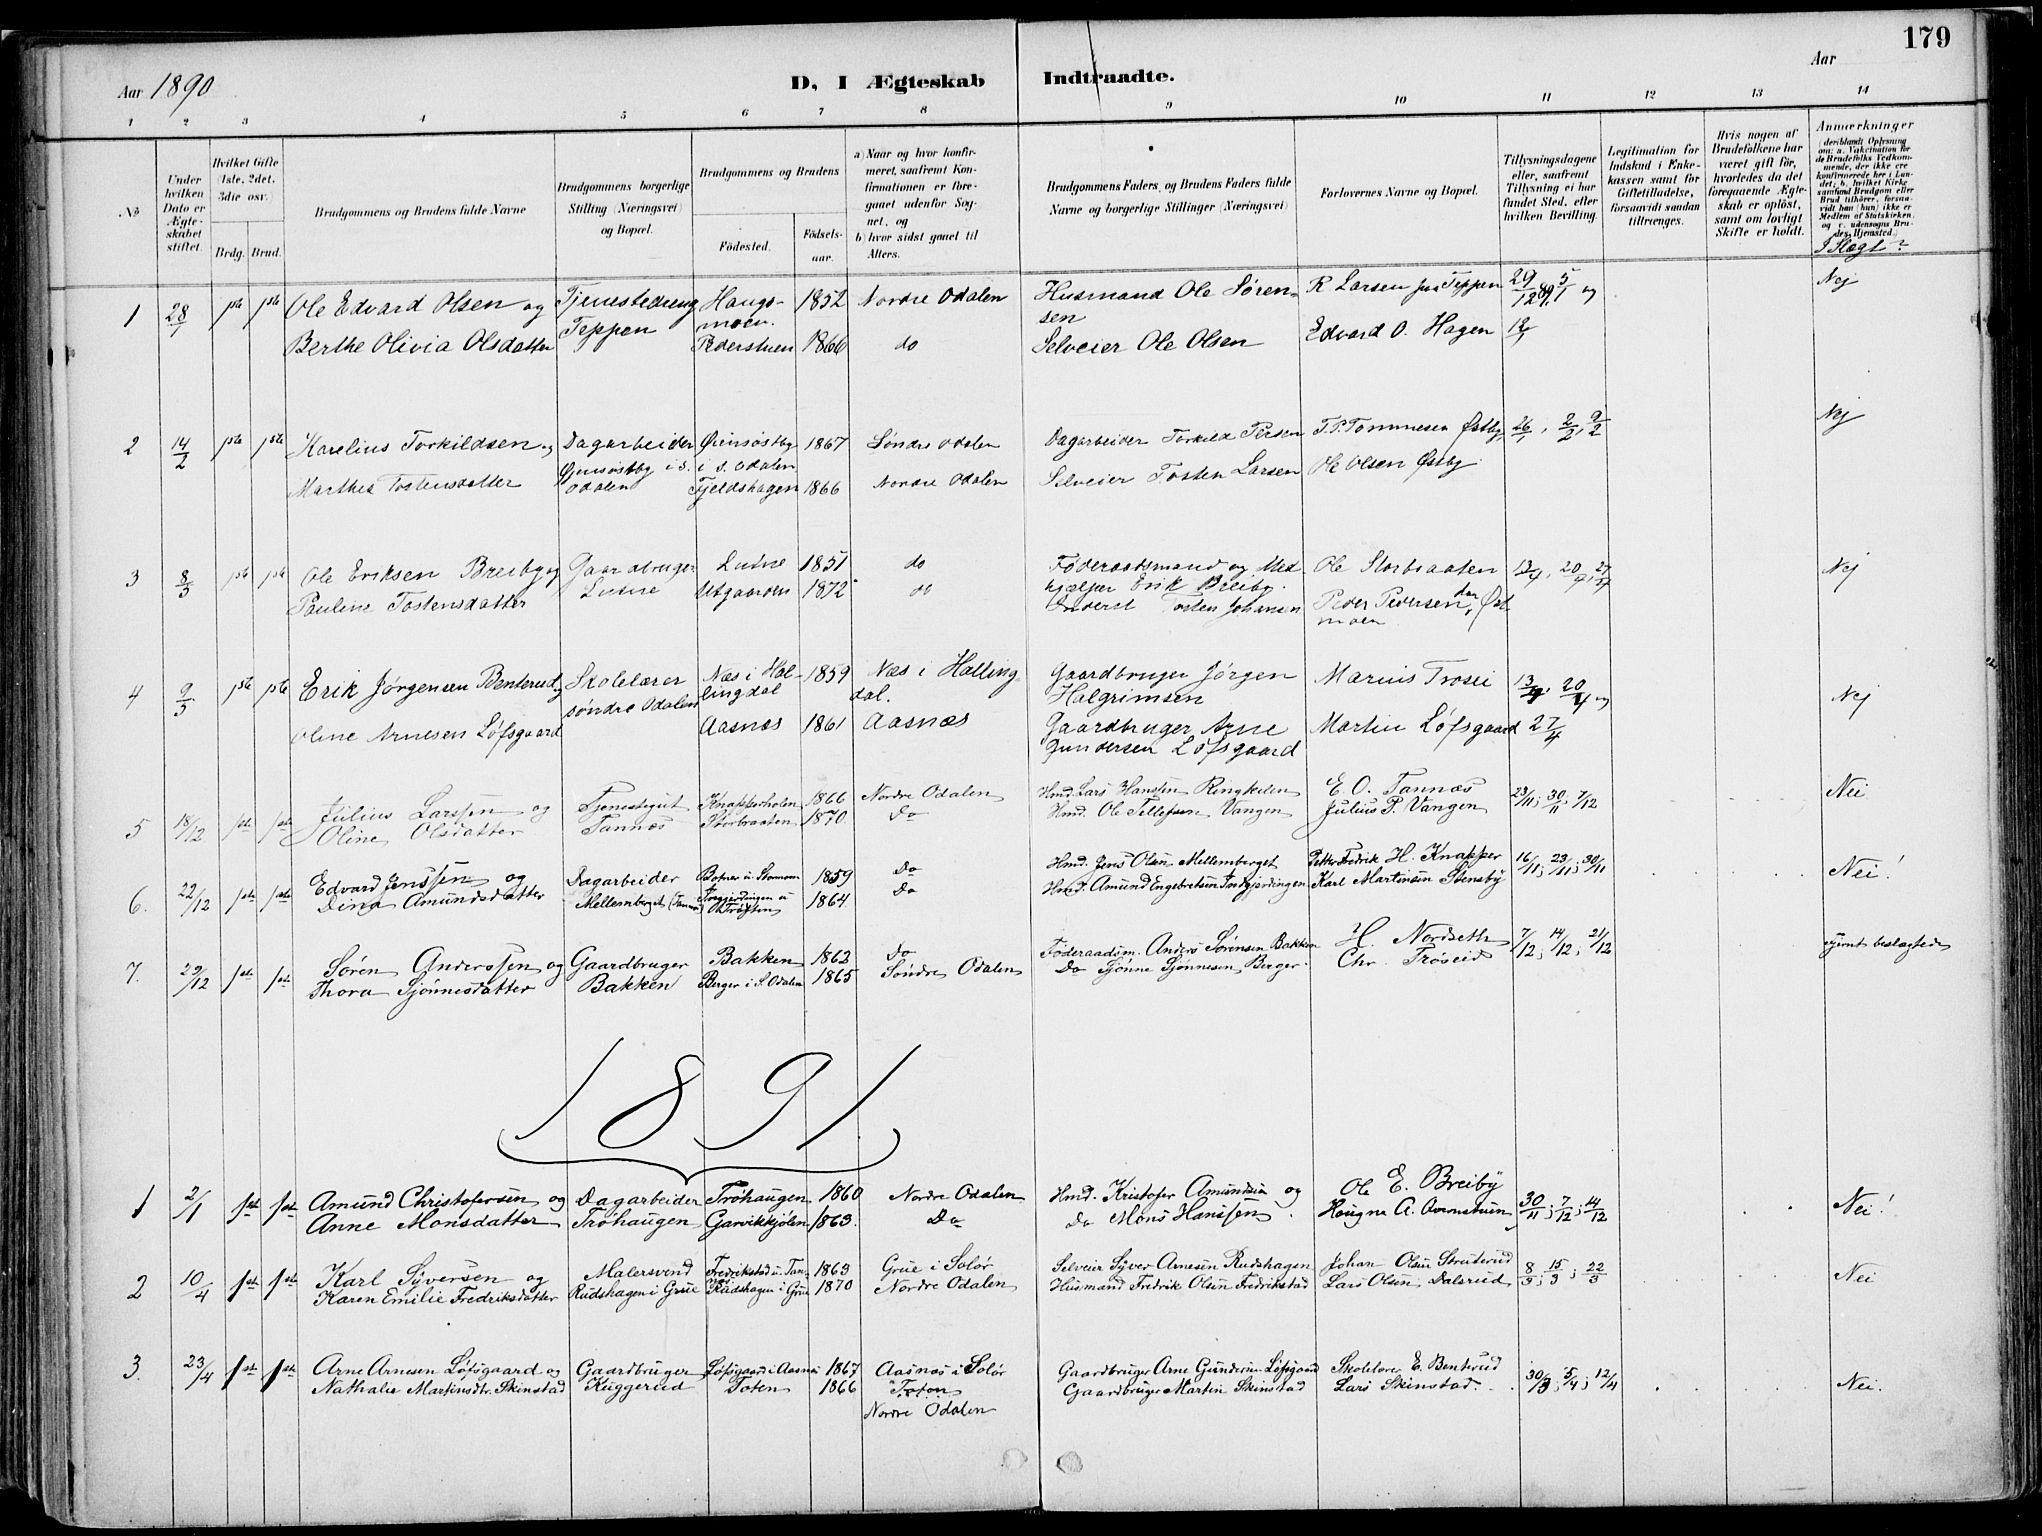 179
Aar 1890
D, I Ægteskab Indtraadte.
Aar
1 2 3 4 5 6 7 8 9 10 11 12 13 14
№
Under hvilken Dato er Ægteskabet stiftet.
Hvilket Gifte (1ste, 2det, 3die osv.)
Brdg. Brud.
Brudgommens og Brudens fulde Navne
Brudgommens borgerlige Stilling (Næringsvei) og Bopæl.
Brudgommens og Brudens
Fødested. Fødselsaar.
a) Naar og hvor konfirmeret, saafremt Konfirmationen er foregaaet udenfor Sognet, og
b) hvor sidst gaaet til Alters.
Brudgommens Faders, og Brudens Faders fulde Navne og borgerlige Stillinger (Næringsvei)
Forlovernes Navne og Bopæl.
Tillysningsdagene eller, saafremt Tillysning ei har fundet Sted, efter hvilken Bevilling.
Legitimation for Indskud i Enkekassen samt for Giftetilladelse, forsaavidt saadan tiltrænges.
Hvis nogen af Brudefolkene har været gift før, hvorledes da det foregaaende Ægteskab er opløst, samt om lovligt Skifte er holdt.
Anmærkninger (deriblandt Oplysning om: a. Vakcination for de Brudefolks Vedkommende, der ikke ere konfirmerede her i Landet; b. hvilket Kirkesamfund Brudgom eller Brud tilhører, forsaavidt han (hun) ikke er Medlem af Statskirken, og c. udensogns Brudes Hjemsted.)
I Slægt?
1 28/1 1ste 1ste Ole Edvard Olsen og Tjenestedreng Haugsmoen 1852 Nordre Odalen Husmand Ole Sørensen R Larsen fra Teppen 29/12 89, 5/1 og Nej
Berthe Olivia Olsdatter Teppen Pederstuen 1866 do Selveier Ole Olsen Edvard O. Hagen 12/1
2 14/2 1ste 1ste Karelius Torkildsen og Dagarbeider Øiensøstby i s. Odalen 1867 Søndre Odalen Dagarbeider Torkild Persen T. P. Tommesen Østby 26/1, 2/2, 9/2 Nej
Marthea Tostensdatter Øiensøstby i s. Odalen Fjeldshagen 1866 Nordre Odalen Selveier Tosten Larsen Ole Olsen Østby
3 8/5 1ste 1ste Ole Eriksen Breiby og Gaardbruger Lutne 1851 do Føderaadsmand og Medhjælper Erik Breiby Ole Storbraaten 13/4, 20/4, 27/4 Nej
Pauline Tostensdatter Lutne Utgaarden 1872 do Inderst Tosten Johansen Peder Pedersen Østmoen
4 9/5 1ste 1ste Erik Jørgensen Benterud og Skolelærer Næs i Hallingdal 1859 Næs i Hallingdal. Gaardbruger Jørgen Halgrimsen Marius Trosei 13/4, 20/4 og Nej
Oline Arnesen Løfsgaard søndre Odalen Aasnæs 1861 Aasnæs Gaardbruger Arne Gundersen Løfsgaard Martin Løfsgaard 27/4
5 18/12 1ste 1ste Julius Larssen og Tjenestegut Knapperholen 1866 Nordre Odalen Hmd. Lars Hanssen Ringkilen E. O. Tannæs 23/11; 30/11; 7/12 Nei
Oline Olsdatter Tannæs Storbraaten 1870 Do Hmd. Ole Tellefsen Vangen Julius P. Vangen
6. 22/12 1ste 1ste Edvard Jenssen og Dagarbeider 1859 Do Hmd. Jens Olsen Mellemberget Petter Fredrik H. Knapper 16/11; 23/11; 30/11 Nei!
Dina Amundsdatter Mellemberget 1864 Do Hmd. Amund Engebretsen Karl Martinsen Stensby
7. 29/12 1ste 1ste Søren Anderssen og Gaardbruger Bakken 1863 Do Føderaadsm. Anders Sørensen Bakken H. Nordseth 7/12; 14/12; 21/12 fjernt beslægtede
Thora Sjønnesdatter Bakken Berger i S. Odalen 1865 Søndre Odalen Do Sjønne Sjønnesen Berger. Chr. Trøseid
1891
1 2/1 1ste 1ste Amund Christofersen og Dagarbeider Trøhaugen 1860 Nordre Odalen Hmd. Kristofer Amundsen og Ole E. Breiby 30/11; 7/12; 14/12 Nei!
Anne Monsdatter Trøhaugen Garvikkjølen 1863. Do Do Mons Hanssen Haugne A.
2 10/4 1ste 1ste Karl Syversen og Malersvend Fredrikstad u. 1863 Grue i Solør Selveier Syver Arnesen Rudshagen Johan Olsen Struterud 8/3; 15/3; 22/3 Nei
Karen Emilie Fredriksdatter Rudshagen i Grue Rudshagen i Grue 1870 Nordre Odalen Husmand Fredrik Olsen Fredrikstad Lars Olsen Dalsrud
3. 23/4 1ste 1ste Arne Arnesen Løfsgaard og Gaardbruger Løfsgaard i Aasnæs 1867 Aasnæs i Solør Gaardbruger Arne Gundersen Løfsgaard Skolelærer E. Benterud 30/3; 5/4; 12/4 Nei.
Nathalie Martinsdtr. Skinstad Kuggerud Toten 1866 Toten Gaardbruger Martin Skinstad Lars Skinstad.
Nordre Odalen